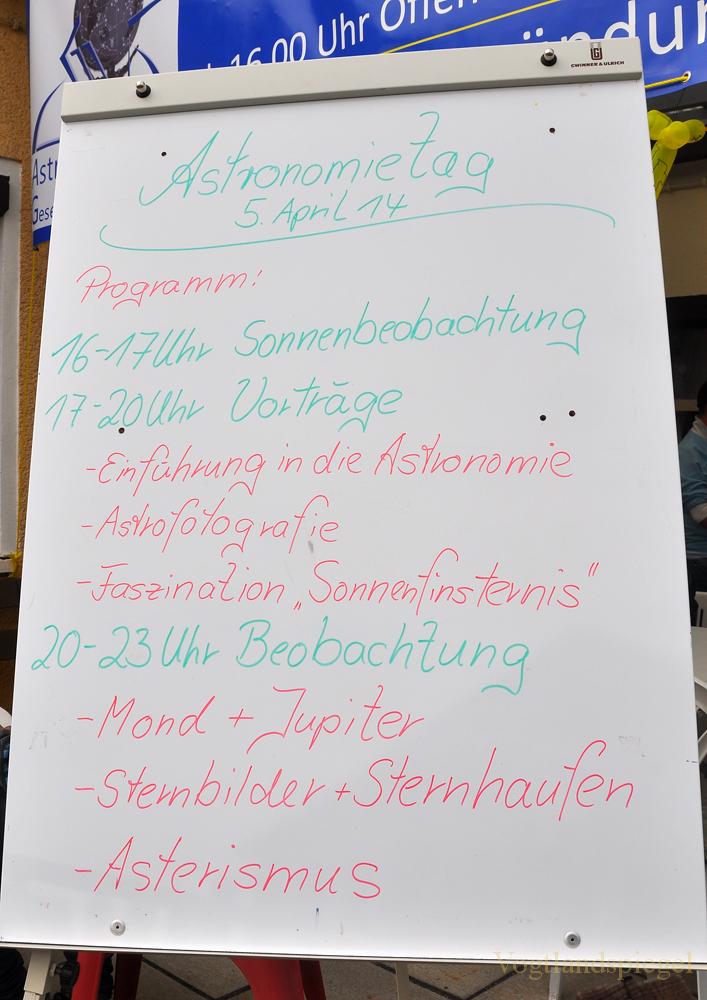 16.00 Uhr Offen
ündun
GWINNER & ULRICH
Astr
Gese
Astronomietag
5. April 14
Programm:
16-17 Uhr Sonnenbeobachtung
17-20 Uhr Vorträge
- Einführung in die Astronomie
- Astrofotografie
- Faszination „Sonnenfinsternis"
20-23 Uhr Beobachtung
- Mond + Jupiter
- Sternbilder + Sternhaufen
- Asterismus
Vogtlandspiegel